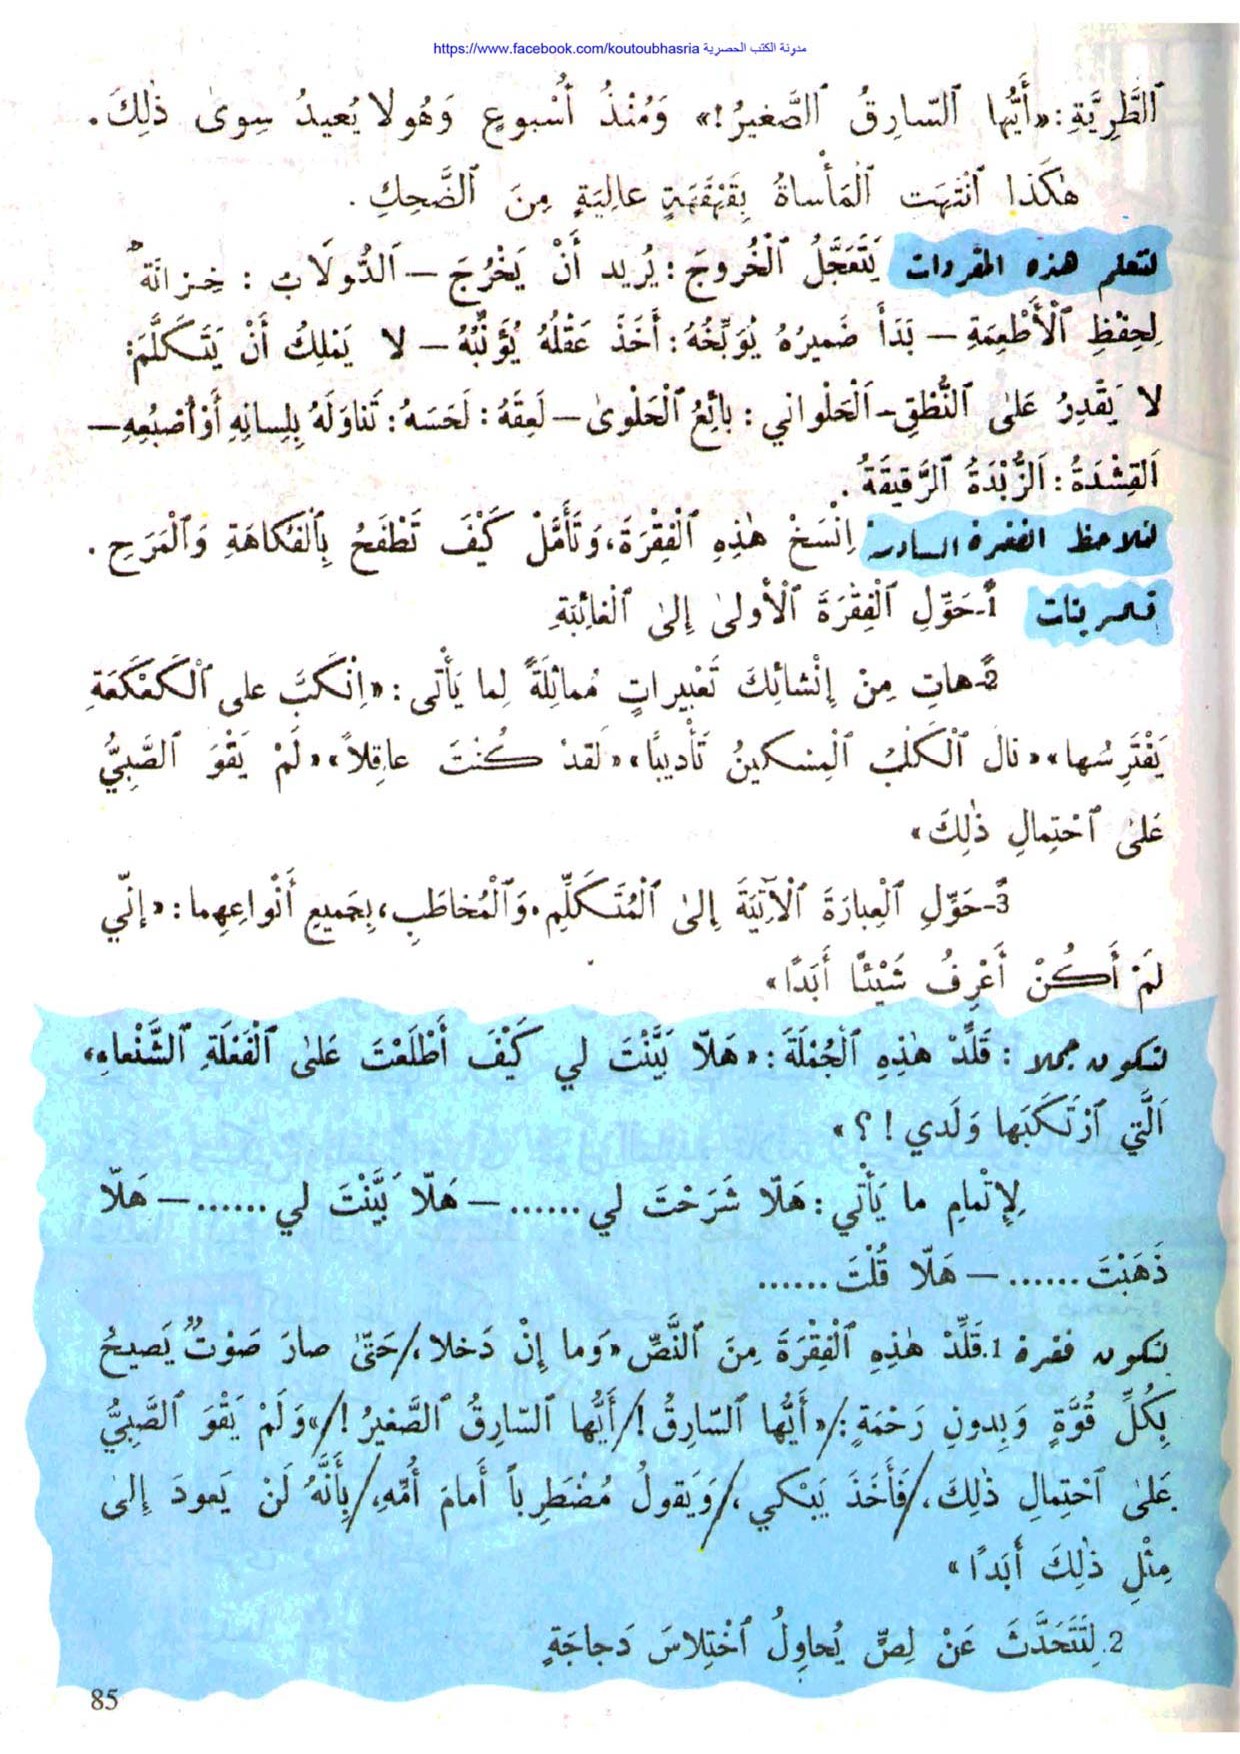 مدونة الكتب الحصرية https://www.facebook.com/koutoubhasria
ٱلطَّرِيَّةِ: «أَيُّها ٱلسّارِقُ ٱلصَّغيرُ!» وَمُنْذُ أُسْبوعٍ وَهُو لا يُعيدُ سِوىٰ ذٰلِكَ.
هٰكَذا ٱنْتَهَت ٱلْمَأْساةُ بِقَهْقَهَةٍ عالِيَةٍ مِنَ ٱلضَّحِكِ.
لنتعلم هذه المفردات يَتَعَجَّلُ ٱلْخُروجَ: يُريد أَنْ يَخْرُجَ – اَلدُّولَابُ: خِزانَةٌ
لِحِفْظِ ٱلْأَطْعِمَةِ – بَدَأَ ضَميرُهُ يُوَبِّخُهُ: أَخَذَ عَقْلُهُ يُؤَنِّبُهُ – لا يَمْلِكُ أَنْ يَتَكَلَّمَ:
لا يَقْدِرُ عَلىٰ ٱلنُّطْقِ – اَلْحَلْواني: بائِعُ ٱلْحَلْوىٰ – لَعِقَهُ: لَحَسَهُ: تَناوَلَهُ بِلِسانِهِ أَوْ أُصْبُعِهِ –
اَلْقِشْدَةُ: اَلزُّبْدَةُ ٱلرَّقيقَةُ.
لنلاحظ الفقرة السادسة اِنْسَخْ هٰذِهِ ٱلْفِقْرَةَ، وَتَأَمَّلْ كَيْفَ تَطْفَحُ بِٱلْفُكاهَةِ وَٱلْمَرَحِ.
تمرينات 1-حَوِّلِ ٱلْفِقْرَةَ ٱلْأولىٰ إِلىٰ ٱلْغائِبَةِ
2-هاتِ مِنْ إِنْشائِكَ تَعْبيراتٍ مُماثِلَةً لِما يَأْتي: «اِنْكَبَّ على ٱلْكَعْكَعَةِ
يَفْتَرِسُها» «نالَ ٱلْكَلْبُ ٱلْمِسْكينُ تَأْديبًا» «لَقدْ كُنْتَ عاقِلاً» «لَمْ يَقْوَ ٱلصَّبِيُّ
عَلىٰ ٱحْتِمالِ ذٰلِكَ»
3-حَوِّلِ ٱلْعِبارَةَ ٱلْآتِيَةَ إِلىٰ ٱلْمُتَكَلِّمِ. وَٱلْمُخاطَبِ، بِجَميعِ أَنْواعِهِما: «إنّي
لَمْ أَكُنْ أَعْرِفُ شَيْئًا أَبَدًا»
لنكون جملا: قَلِّدْ هٰذِهِ ٱلْجُمْلَةَ: «هَلّا بَيَّنْتَ لي كَيْفَ أطْلَعْتَ عَلىٰ ٱلْفَعْلَةِ ٱلشَّنْعاءِ،
اَلَّتي ٱرْتَكَبَها وَلَدي!؟»
لِإِتْمامِ ما يَأْتي: هَلّا شَرَحْتَ لي ...... – هَلّا بَيَّنْتَ لي ...... – هَلّا
ذَهَبْتَ ...... – هَلّا قُلْتَ ......
لنكون فقرة 1. قَلِّدْ هٰذِهِ ٱلْفِقْرَةَ مِنَ ٱلنَّصِّ «وَما إِنْ دَخلا،/ حَتّىٰ صارَ صَوْتٌ يَصيحُ
بِكُلِّ قُوَّةٍ وَبِدونِ رَحْمَةٍ:/ «أَيُّها ٱلسّارِقُ!/ أَيُّها ٱلسّارِقُ ٱلصَّغيرُ!/» وَلَمْ يَقْوَ ٱلصَّبِيُّ
عَلىٰ ٱحْتِمالِ ذٰلِكَ،/ فَأَخَذَ يَبْكي،/ وَيَقولُ مُضْطَرِباً أَمامَ أُمِّهِ،/ بِأَنَّهُ لَنْ يَعودَ إِلىٰ
مِثْلِ ذٰلِكَ أَبَدًا»
2. لِتَتَحَدَّثَ عَنْ لِصٍّ يُحاوِلُ ٱخْتِلاسَ دَجاجَةٍ
85